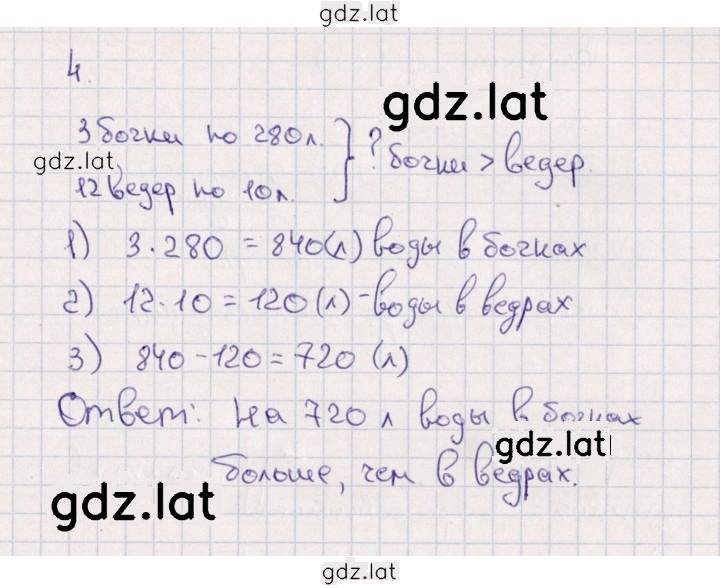 gdz.lat
4.
gdz.lat
3 бочки по 280л.
gdz.lat
12 ведер по 10л.
? бочки > ведер.
1) 3·280 = 840(л) воды в бочках
2) 12·10 = 120(л) - воды в ведрах
3) 840-120=720 (л)
Ответ: на 720 л воды в бочках
gdz.lat
больше, чем в ведрах.
gdz.lat
gdz.lat